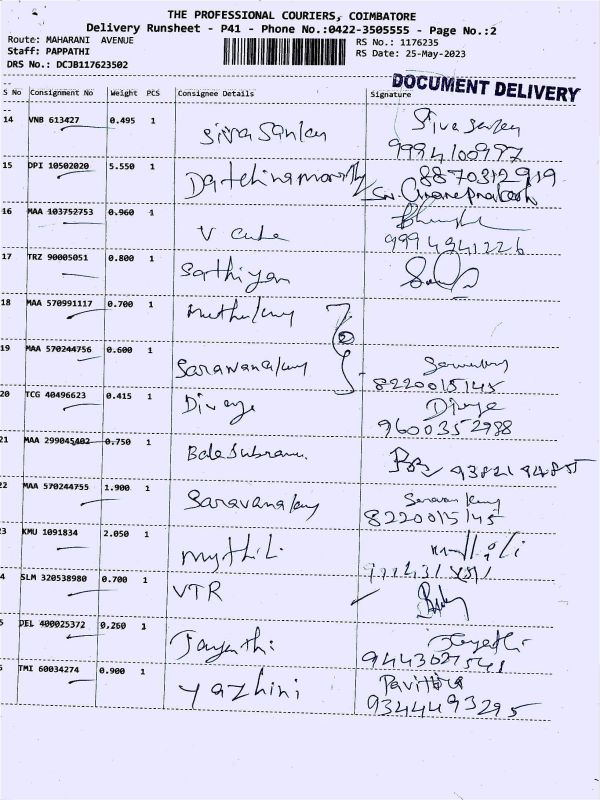 THE PROFESSIONAL COURIERS, COIMBATORE
Delivery Runsheet - P41 - Phone No.:0422-3505555 - Page No.:2
Route: MAHARANI AVENUE RS No.: 1176235
Staff: PAPPATHI RS Date: 25-May-2023
DRS No.: DCJB117623502
DOCUMENT DELIVERY
S No Consignment No Weight PCS Consignee Details Signature
14 VNB 613427 0.495 1 Siva Sankar
9994100997
15 DPI 10502020 5.550 1 8870312919
16 MAA 103752753 0.960 1 V Cube
9994941226
17 TRZ 90005051 0.800 1 Sathiyan
18 MAA 570991117 0.700 1
19 MAA 570244756 0.600 1
8220015145
20 TCG 40496623 0.415 1 Divaye
9600352988
21 MAA 299045402 0.750 1 Balasubram.
22 MAA 570244755 1.900 1
8220015145
3 KMU 1091834 2.050 1 Mythili
4 SLM 320538980 0.700 1 VTR
5 DEL 400025372 0.260 1 Jayanthi
9443027541
TMI 60034274 0.900 1 Yazhini Pavithra
9344493295